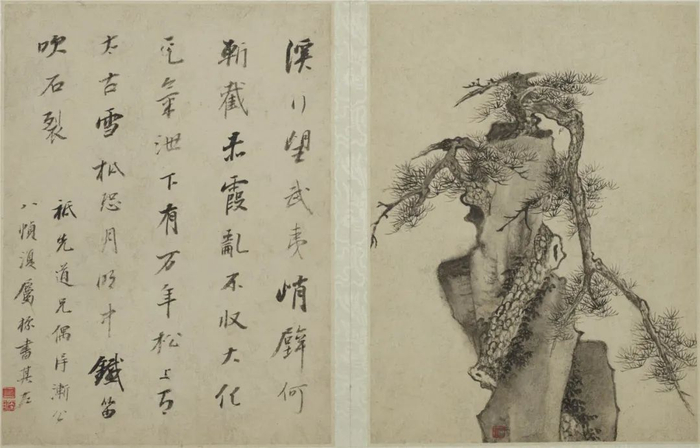 溪行望武夷峭壁何
斬截赤霞亂不收大化
元氣泄下有万年松上有
太古雪柢恐月明中鐵笛
吹石裂
祗先道兄偶得漸公
八幀溪屬標書其左